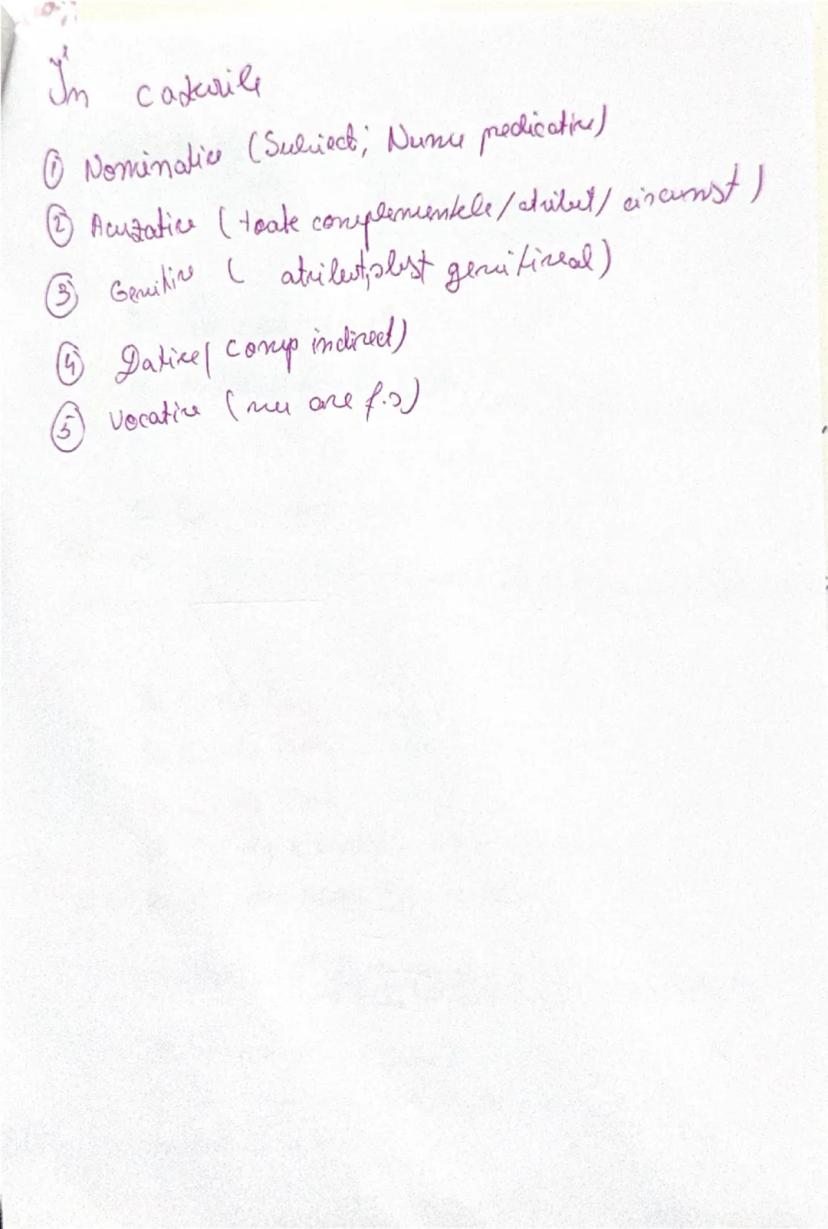 În cazurile
① Nominativ (Subiect; Nume predicativ)
② Acuzativ (toate complementele/atribut/circumst)
③ Genitiv ( atribut subst genitival)
④ Dativ( comp indirect)
⑤ Vocativ (nu are f.s)